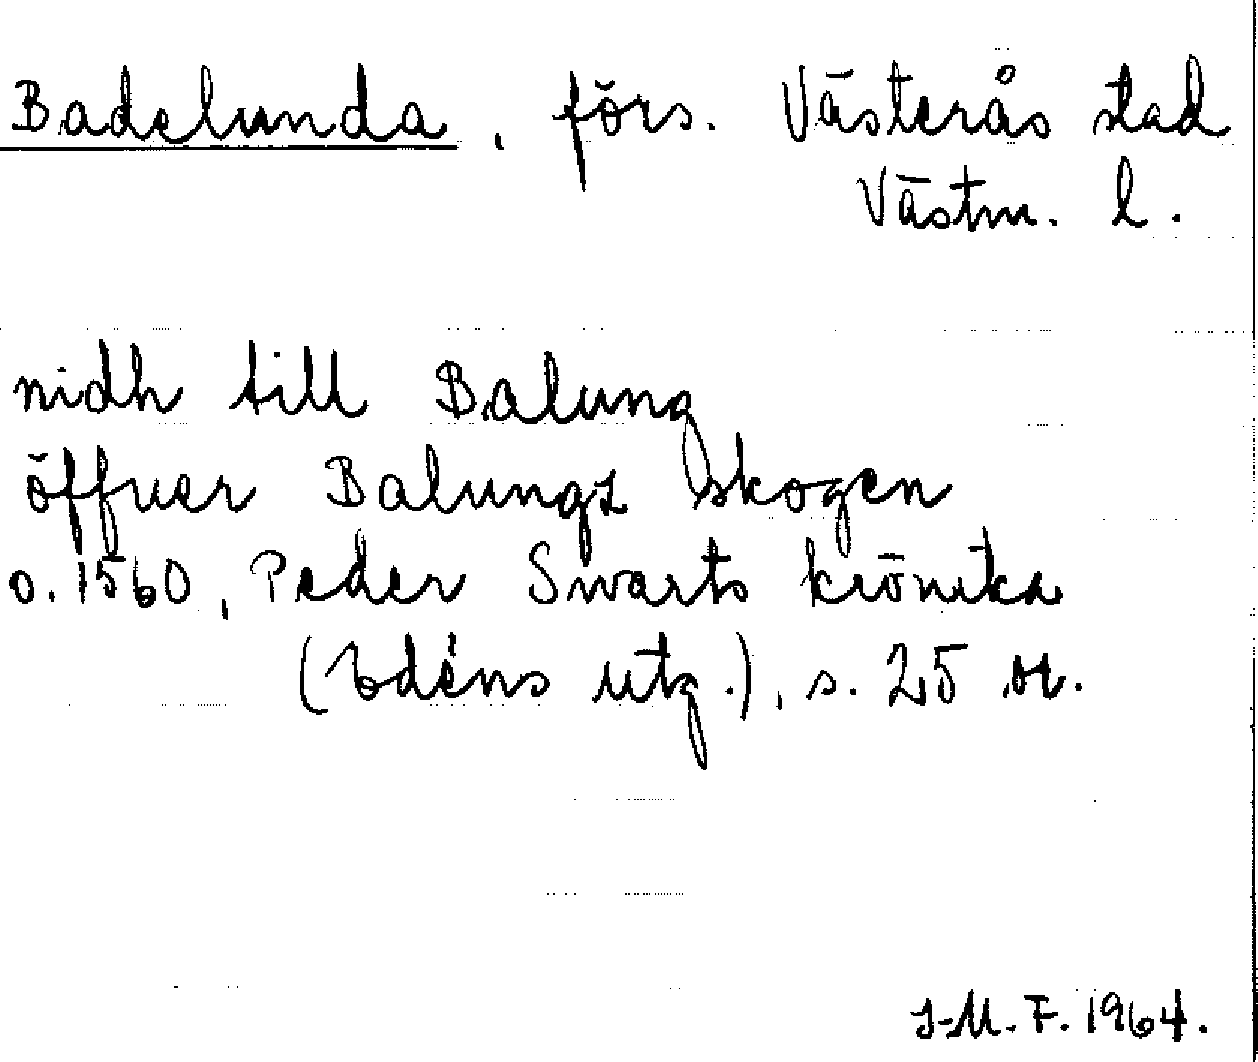 Badelunda, förs. Västerås stad
Västm. l.
nidh till Balung
öffuer Balungs skogen
o. 1560, Peder Swarts krönika
(Edéns utg.), s. 25 
I-M. F. 1964.